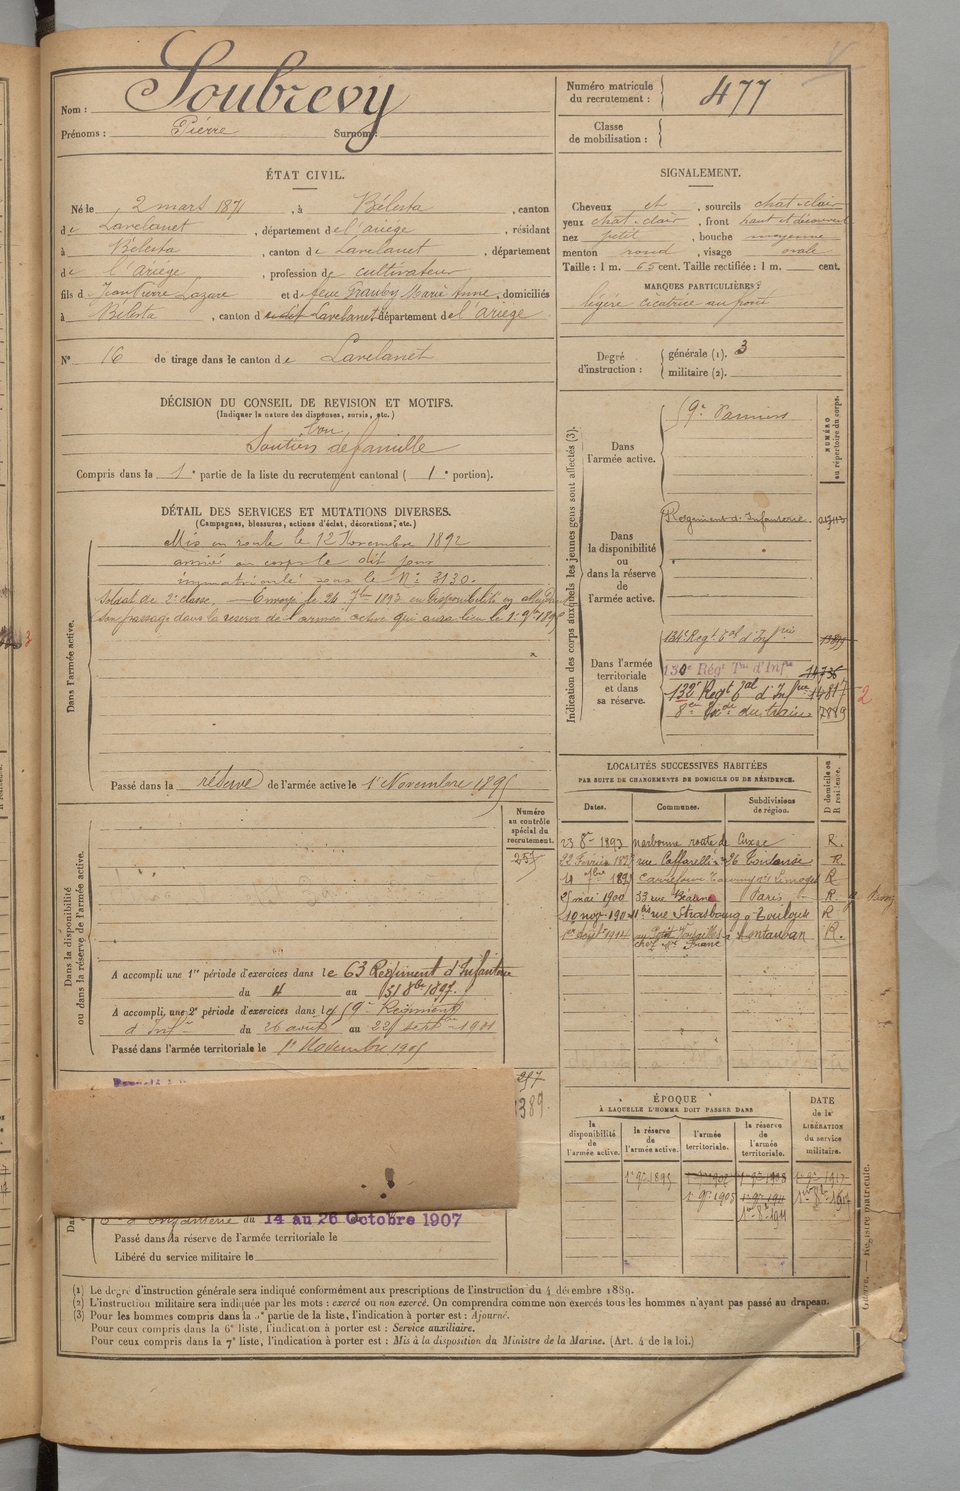 Nom : Soubrevy
Prénoms : Pierre Surnom :
Numéro matricule du recrutement : 477
Classe de mobilisation :
ÉTAT CIVIL.
Né le 2 mars 1871, à Bélesta, canton
de Lavelanet, département de l'ariège, résidant
à Bélesta, canton de Lavelanet, département
de l'ariège, profession de cultivateur
fils de Jean Pierre Lazare et de feue Marie Anne, domiciliés
à Bélesta, canton dudit Lavelanet département de l'Ariège
N° 16 de tirage dans le canton de Lavelanet
SIGNALEMENT.
Cheveux et, sourcils chat-clair
yeux chat-clair, front haut et découvert
nez petit, bouche moyenne
menton rond, visage ovale
Taille : 1 m. 65 cent. Taille rectifiée : 1 m. cent.
MARQUES PARTICULIÈRES :
légère cicatrice au front
Degré d'instruction : générale (1). 3
militaire (2).
DÉCISION DU CONSEIL DE REVISION ET MOTIFS.
(Indiquer la nature des dispenses, sursis, etc.)
bon
Soutien de famille
Compris dans la 1e partie de la liste du recrutement cantonal (1e portion).
DÉTAIL DES SERVICES ET MUTATIONS DIVERSES.
(Campagnes, blessures, actions d'éclat, décorations, etc.)
Dans l'armée active.
Mis en route le 12 Novembre 1892
arrivé au corps le dit jour
immatriculé sous le N° 3130.
Soldat de 2e classe. — Envoyé le 24 7bre 1893 en disponibilité en
Son passage dans la réserve de l'armée active qui aura lieu le 1er 9bre 1895
Passé dans la réserve de l'armée active le 1er Novembre 1895
Indication des corps auxquels les jeunes gens sont affectés (3).
NUMÉRO au répertoire du corps.
Dans l'armée active.
59e Pamiers
Dans la disponibilité ou dans la réserve de l'armée active.
Régiment d'Infanterie
Dans l'armée territoriale et dans sa réserve.
134e Regt tal d'Infrie
130e Régt Tal d'Infie 14736
132e Regt tal d'Infrie 14817 2
8e Exon du train 7889
Dans la disponibilité ou dans la réserve de l'armée active.
Numéro au contrôle spécial du recrutement.
257
A accompli une 1re période d'exercices dans le 63 Régiment d'Infanterie
du 4 au 31 8bre 1897.
A accompli une 2e période d'exercices dans le 59e Régiment
d'Infie du 26 août au 22 septbre 1901
Passé dans l'armée territoriale le 1er Novembre 1905
257
1389
LOCALITÉS SUCCESSIVES HABITÉES
PAR SUITE DE CHANGEMENTS DE DOMICILE OU DE RÉSIDENCE.
Dates. Communes. Subdivisions de région. D domicile ou R résidence.
23 8bre 1893 narbonne route de Cuxac R.
22 Février rue Caffarelli 26 Toulouse R
Carrefour Tourny Limoges R
mai 1900 33 rue Paris R.
10 nov. 11bis rue Strasbourg à Toulouse R
1er août 1904 au Petit Versailles à Montauban R.
ÉPOQUE
À LAQUELLE L'HOMME DOIT PASSER DANS
la disponibilité de l'armée active.
la réserve de l'armée active.
l'armée territoriale.
la réserve de l'armée territoriale.
DATE de la LIBÉRATION du service militaire.
1er 9bre 1895
1er 9bre 1905
1er 8bre 1911
1er 8bre 1917
d'Infanterie du 14 au 26 Octobre 1907
Passé dans la réserve de l'armée territoriale le
Libéré du service militaire le
(1) Le degré d'instruction générale sera indiqué conformément aux prescriptions de l'instruction du 4 décembre 1889.
(2) L'instruction militaire sera indiquée par les mots : exercé ou non exercé. On comprendra comme non exercés tous les hommes n'ayant pas passé au drapeau.
(3) Pour les hommes compris dans la 5e partie de la liste, l'indication à porter est : Ajourné.
Pour ceux compris dans la 6e liste, l'indication à porter est : Service auxiliaire.
Pour ceux compris dans la 7e liste, l'indication à porter est : Mis à la disposition du Ministre de la Marine. (Art. 4 de la loi.)
Guerre. — Registre matricule.